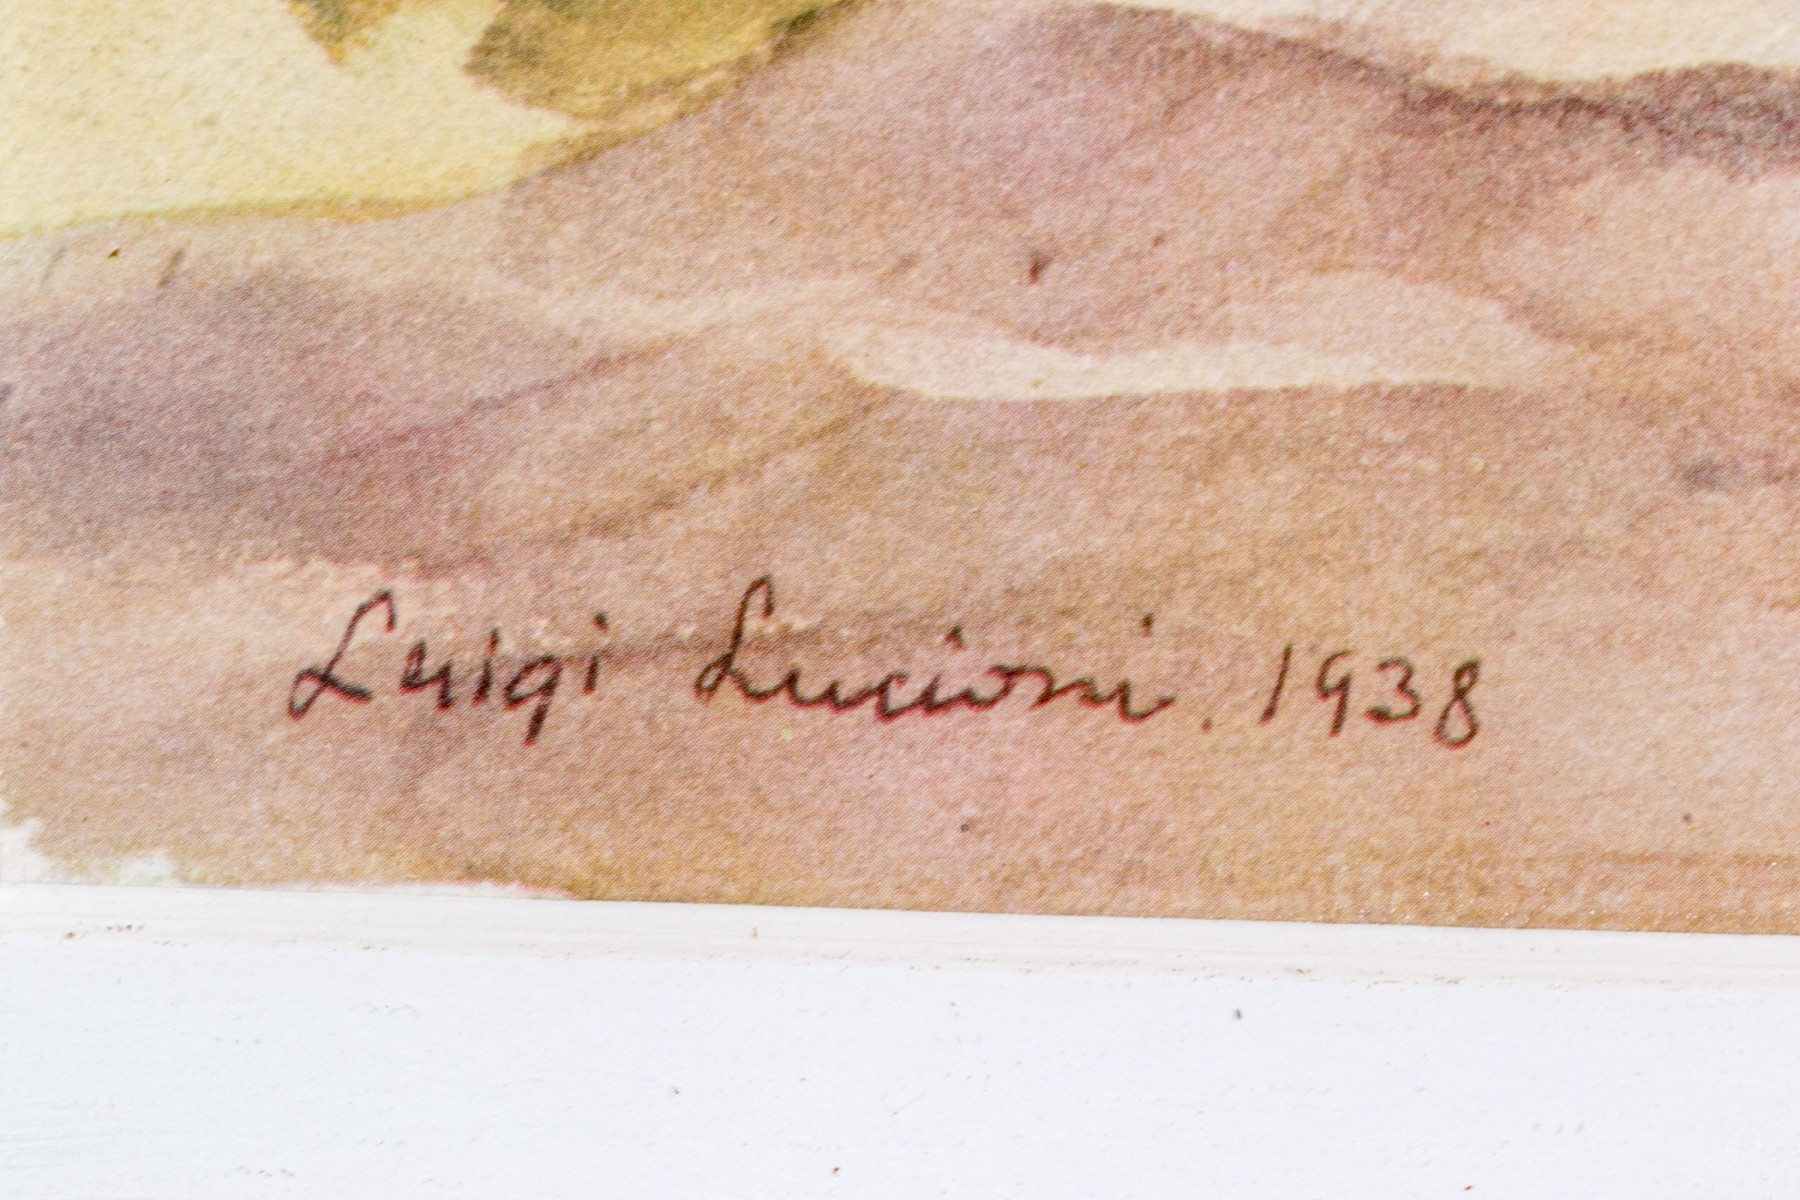 Luigi Lucioni. 1938